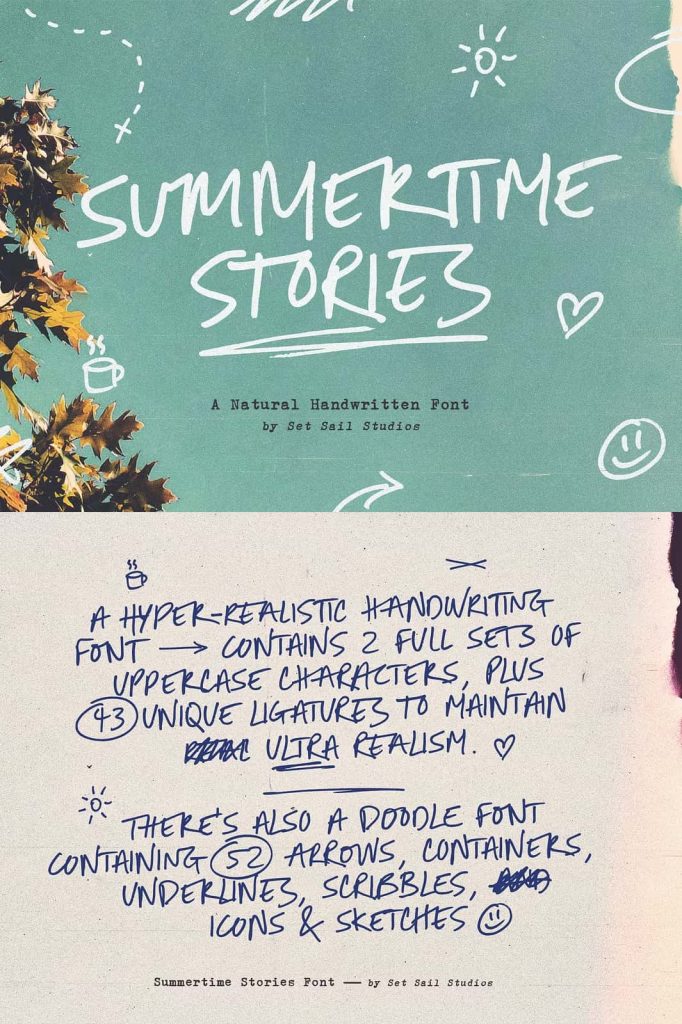 SUMMERTIME
STORIES
A Natural Handwritten Font
by Set Sail Studios
A HYPER-REALISTIC HANDWRITING
FONT → CONTAINS 2 FULL SETS OF
UPPERCASE CHARACTERS, PLUS
43 UNIQUE LIGATURES TO MAINTAIN
ULTRA REALISM.
THERE'S ALSO A DOODLE FONT
CONTAINING 52 ARROWS, CONTAINERS,
UNDERLINES, SCRIBBLES,
ICONS & SKETCHES
Summertime Stories Font — by Set Sail Studios